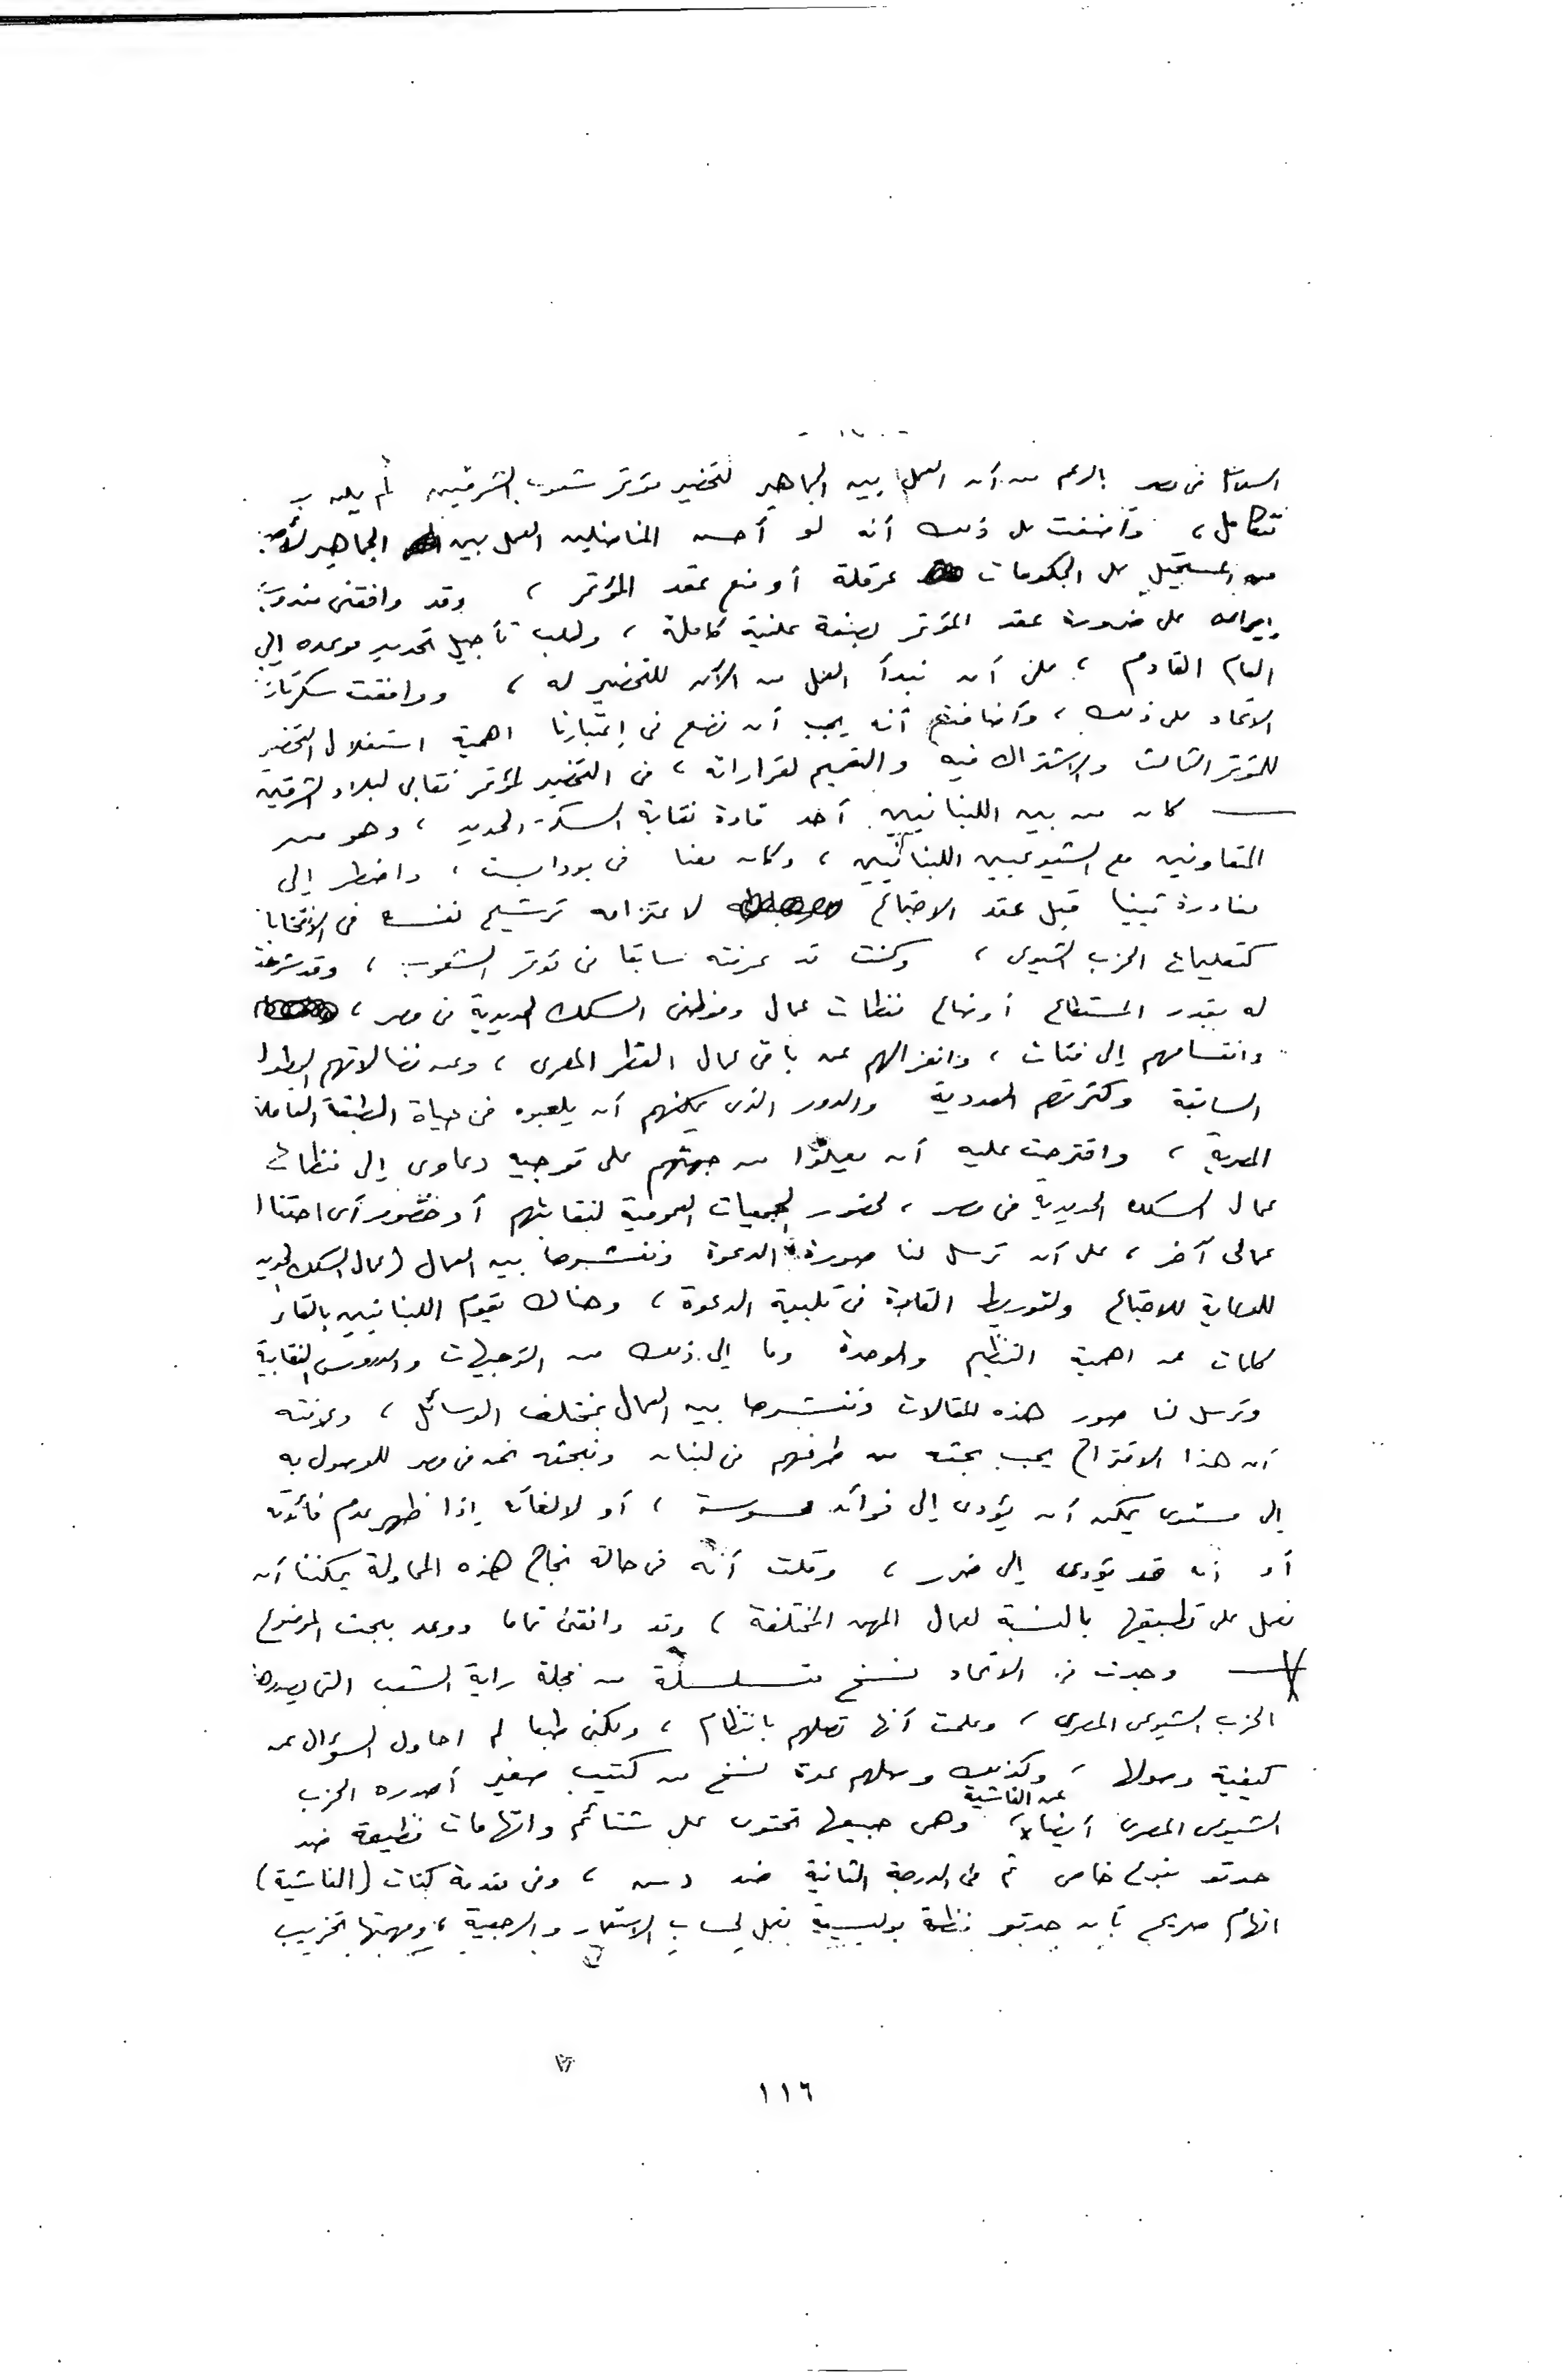 السلام فى مصر بالرغم من أن العمل بين الجماهير لتحضير مؤتمر شعوب الشرقين لم يكن
متكامل، وأضفت على ذلك أنه لو أحسن المناضلين العمل بين الجماهير لأصبح
من المستحيل على الحكومات عرقلة أو منع عقد المؤتمر، وقد وافقنى مندوب
إيران على ضرورة عقد المؤتمر بصفة علنية كاملة، وطلب تأجيل تحديد موعده إلى
العام القادم، على أن نبدأ العمل من الآن للتحضير له، ووافقت سكرتارية
الاتحاد على ذلك، وأضافت أنه يجب أن نضع فى إعتبارنا اهمية استغلال التحضير
للمؤتمر الثالث والاشتراك فيه والتعميم لقراراته، فى التحضير لمؤتمر نقابى لبلاد الشرقين
— كان من بين اللبنانيين أحد قادة نقابة السكة الحديد، وهو من
المتعاونين مع الشيوعيين اللبنانيين، وكان معنا فى بودابست، واضطر إلى
مغادرة ڤيينا قبل عقد الاجتماع لاعتزامه ترشيح نفسه فى الانتخابات
كتعليمات الحزب الشيوعى، وكنت قد عرفته سابقا فى مؤتمر الشعوب، وقد شرحت
له بقدر المستطاع أوضاع منظمات عمال وموظفى السكك الحديدية فى مصر،
وانقسامهم إلى فئات، وانعزالهم عن باقى عمال القطر المصرى، وعن نضالاتهم البطولية
السابقة وكثرتهم العددية والدور الذى يمكنهم أن يلعبوه فى حياة الطبقة العاملة
المصرية، واقترحت عليه أن يعملوا من جهتهم على توجيه دعاوى إلى منظمات
عمال السكك الحديدية فى مصر، لحضور الجمعيات العمومية لنقاباتهم أو حضور أى احتفال
عمالى آخر، على أن ترسل لنا صورة الدعوة وننشرها بين العمال (عمال السكك الحديد
للدعاية للاجتماع ولتوريط القادة فى تلبية الدعوة، وهناك يقوم اللبنانيين بالقاء
كلمات عن اهمية التنظيم والوحدة وما إلى ذلك من التوجيهات والدروس النقابية
وترسل لنا صور هذه المقالات وننشرها بين العمال بمختلف الوسائل، وعرفته
أن هذا الاقتراح يجب بحثه من طرفهم فى لبنان ونبحثه نحن فى مصر للوصول به
إلى مستوى يمكن أن يؤدى إلى فوائد محسوسة، أو لالغائه إذا ظهر عدم فائدته
أو أنه قد يؤدى إلى ضرر، وقلت أنه فى حالة نجاح هذه المحاولة يمكننا أن
نعمل على تطبيقها بالنسبة لعمال المهن المختلفة، وقد وافقنى تماما ووعد ببحث الموضوع
— وجدت فى الاتحاد نسخ متسلسلة من مجلة راية الشعب التى يصدرها
الحزب الشيوعى المصرى، وعلمت أنها تصلهم بانتظام، ولكنى طبعا لم احاول السؤال عن
كيفية وصولها، وكذلك وصلهم عدة نسخ من كتيب صغير أصدره الحزب
الشيوعى المصرى أيضا عن الفاشية، وهى جميعها تحتوى على شتائم واتهامات فظيعة ضد
حدتو بنوع خاص ثم فى الدرجة الثانية ضد د س، وفى مقدمة كتاب (الفاشية)
اتهام صريح بأن حدتو منظمة بوليسية تعمل لحساب الاستعمار والرجعية، ومهمتها تخريب
١١٦